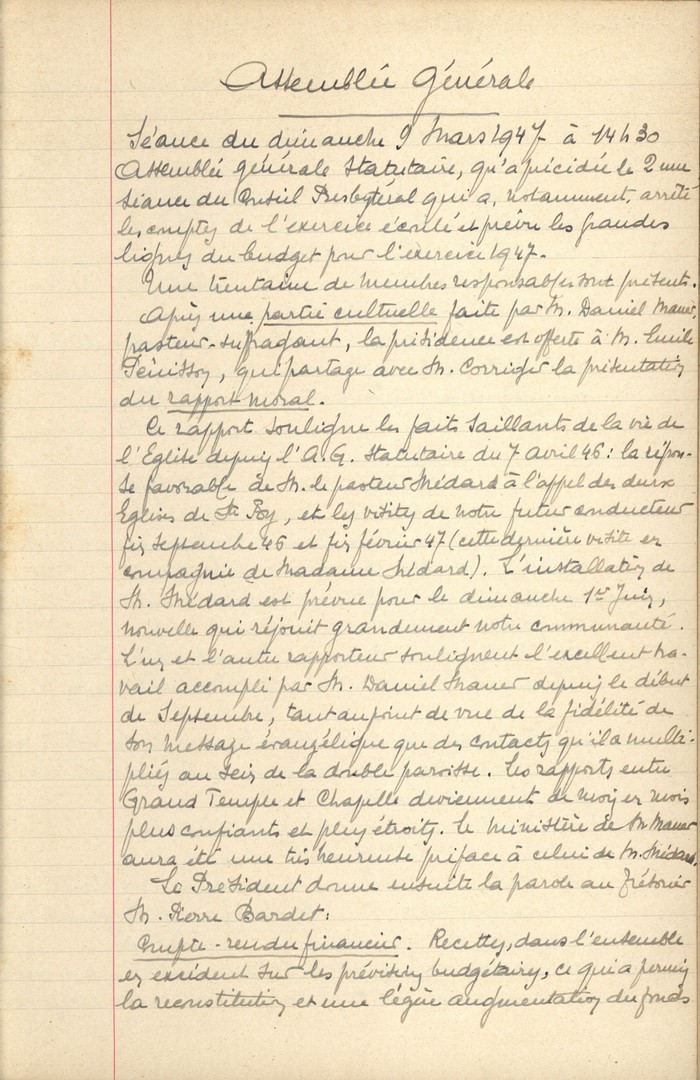 Assemblée Générale
Séance du dimanche 9 Mars 1947 à 14h30
Assemblée générale Statutaire, qu'a précédée la 2ème
séance du Conseil Presbytéral qui a, notamment, arrêté
les comptes de l'exercice écoulé et prévu les grandes
lignes du budget pour l'exercice 1947.
Une trentaine de membres responsables sont présents.
Après une partie cultuelle faite par M. Daniel Maner,
pasteur-suffragant, la présidence est offerte à M. Emile
Pénisson, qui partage avec M. Corriger la présentation
du rapport moral.
Ce rapport souligne les faits saillants de la vie de
l'Eglise depuis l'A.G. Statutaire du 7 avril 46 : la répon-
se favorable de M. le pasteur Médard à l'appel des deux
Eglises de Ste Foy, et les visites de notre futur conducteur
fin Septembre 46 et fin février 47 (cette dernière visite en
compagnie de Madame Médard). L'installation de
M. Médard est prévue pour le dimanche 1er Juin,
nouvelle qui réjouit grandement notre communauté.
L'un et l'autre rapporteur soulignent l'excellent tra-
vail accompli par M. Daniel Maner depuis le début
de Septembre, tant au point de vue de la fidélité de
son message évangélique que des contacts qu'il a multi-
pliés au sein de la double paroisse. Les rapports entre
Grand Temple et Chapelle deviennent de mois en mois
plus confiants et plus étroits. Le ministère de M Maner
aura été une très heureuse préface à celui de M. Médard.
Le Président donne ensuite la parole au Trésorier
M. Pierre Bardet :
Compte-rendu financier. Recettes, dans l'ensemble
en excédent sur les prévisions budgétaires, ce qui a permis
la reconstitution et une légère augmentation du fonds